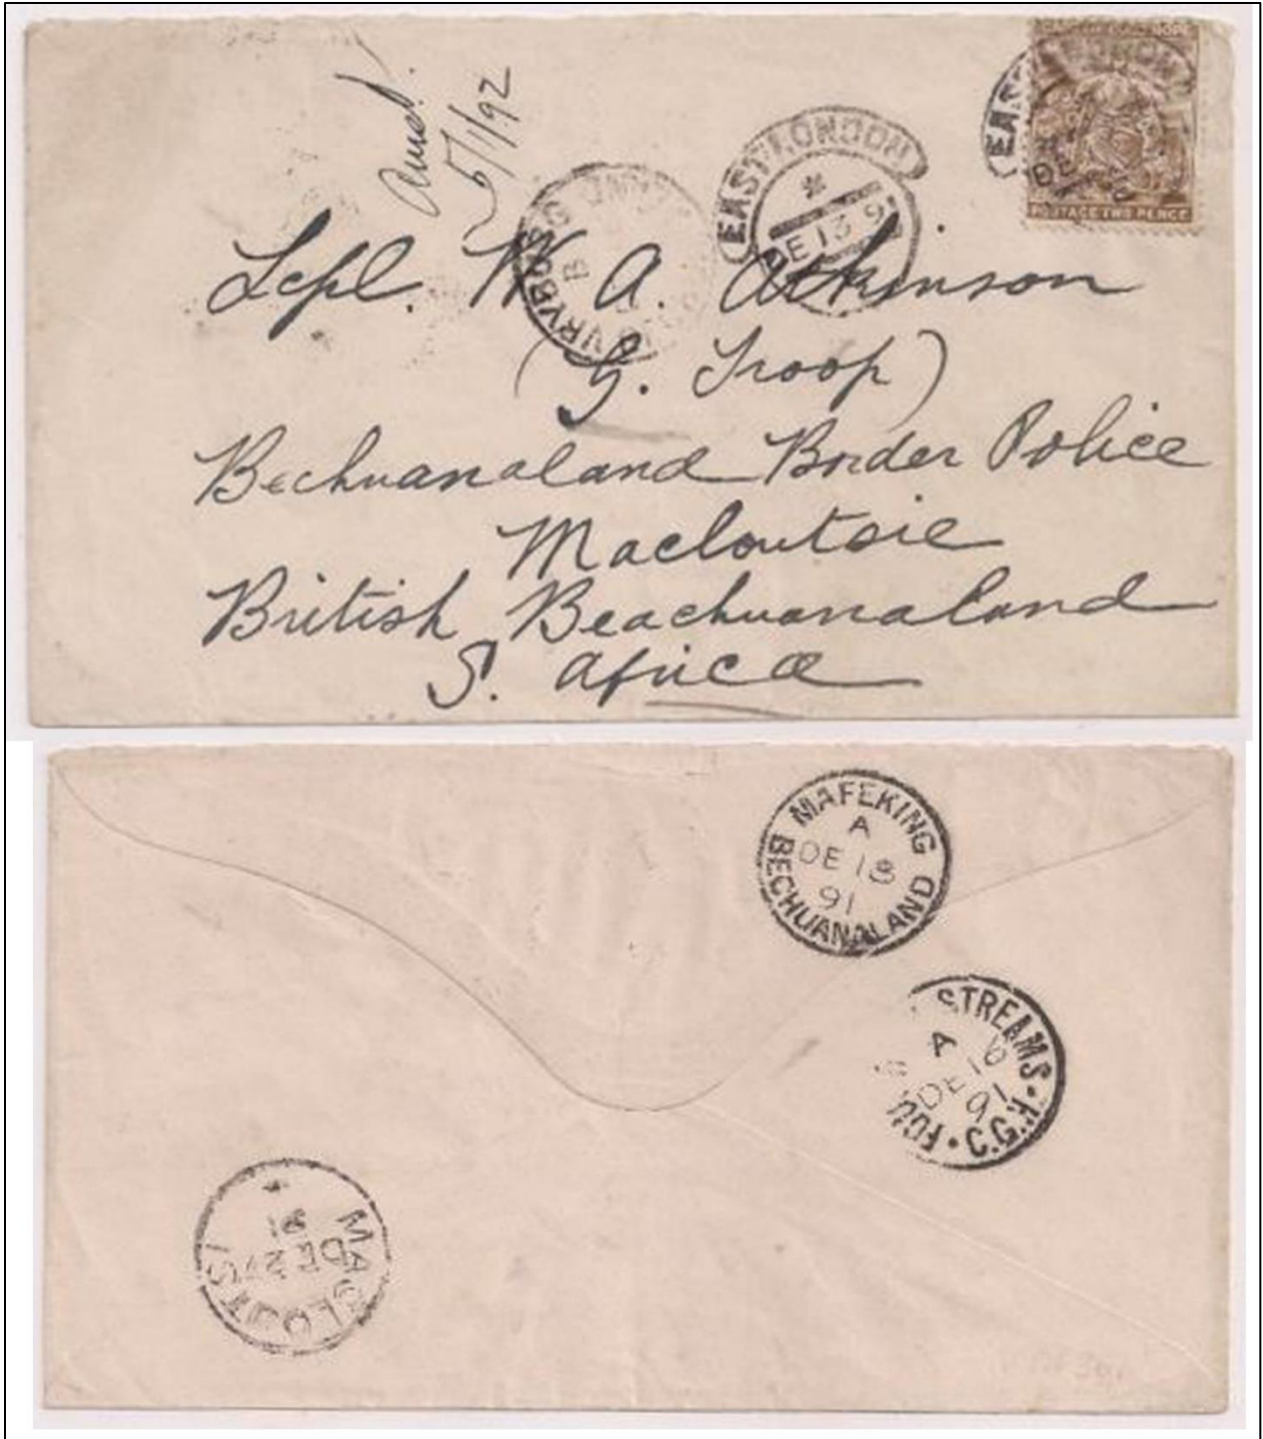 Ansd.
5/1/92
EAST LONDON
DE 13 9
EAS
DE
HOPE
POSTAGE TWO PENCE
Lcpl. W A. Atkinson
(G. Troop)
Bechuanaland Border Police
Macloutsie
British Beachuanaland
S. Africa
MAFEKING
A
DE 18
91
BECHUANALAND
STREAMS
A
DE 16
91
FOU · C.G.H.
MACLOUTSI
DE 27
91